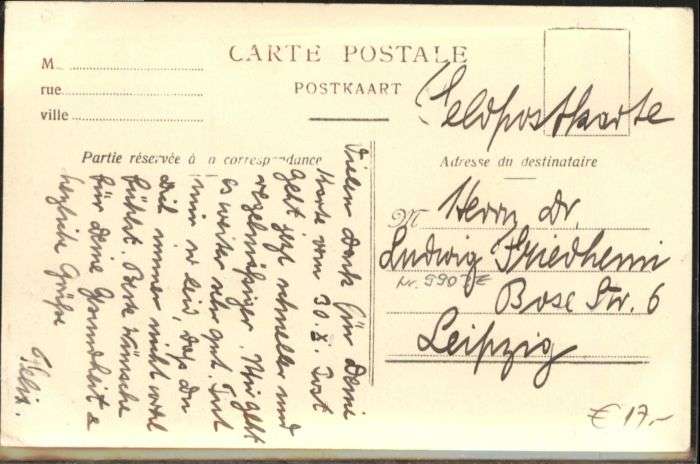 CARTE POSTALE
POSTKAART
M
rue
ville
Feldpostkarte
Partie réservée à la correspondance
Adresse du destinataire
Vielen Dank für Deine
Karte vom 30.X. Post
geht jetzt schneller und
regelmäßiger. Mir geht
es weiter sehr gut. Tut
mir so leid, dass Du
Dich immer nicht wohl
fühlst. Beste Wünsche
für Deine Gesundheit &
herzliche Grüße
Felix.
M Herrn Dr.
Ludwig Friedheim
Nr. 9907
Bose Str. 6
Leipzig
€ 17,-